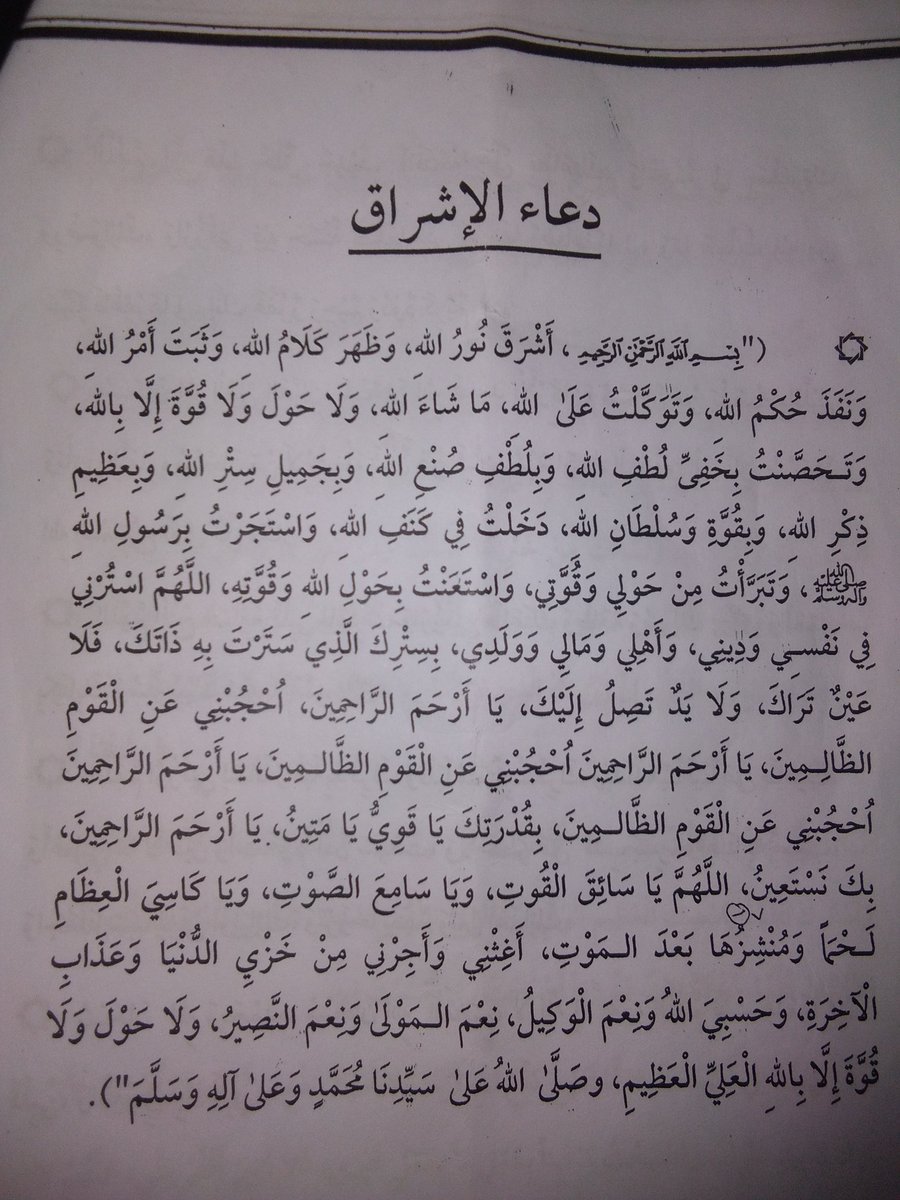 دعاء الإشراق
("بِسْمِ اللهِ الرَّحْمٰنِ الرَّحِيمِ، أَشْرَقَ نُورُ اللهِ، وَظَهَرَ كَلَامُ اللهِ، وَثَبَتَ أَمْرُ اللهِ،
وَنَفَذَ حُكْمُ اللهِ، وَتَوَكَّلْتُ عَلَىٰ اللهِ، مَا شَاءَ اللهِ، وَلَا حَوْلَ وَلَا قُوَّةَ إِلَّا بِاللهِ،
وَتَـحَصَّنْتُ بِخَفِيِّ لُطْفِ اللهِ، وَبِلُطْفِ صُنْعِ اللهِ، وَبِجَمِيلِ سِتْرِ اللهِ، وَبِعَظِيمِ
ذِكْرِ اللهِ، وَبِقُوَّةِ وَسُلْطَانِ اللهِ، دَخَلْتُ فِي كَنَفِ اللهِ، وَاسْتَجَرْتُ بِرَسُولِ اللهِ
ﷺ، وَتَبَرَّأْتُ مِنْ حَوْلِي وَقُوَّتِي، وَاسْتَعَنْتُ بِحَوْلِ اللهِ وَقُوَّتِهِ، اللَّهُمَّ اسْتُرْنِي
فِي نَفْسِـي وَدِينِي، وَأَهْلِي وَمَالِي وَوَلَدِي، بِسِتْرِكَ الَّذِي سَتَرْتَ بِهِ ذَاتَكَ، فَلَا
عَيْنٌ تَرَاكَ، وَلَا يَدٌ تَصِلُ إِلَيْكَ، يَا أَرْحَمَ الرَّاحِمِينَ، اُحْجُبْنِي عَنِ الْقَوْمِ
الظَّالِـمِينَ، يَا أَرْحَمَ الرَّاحِمِينَ اُحْجُبْنِي عَنِ الْقَوْمِ الظَّالِـمِينَ، يَا أَرْحَمَ الرَّاحِمِينَ
اُحْجُبْنِي عَنِ الْقَوْمِ الظَّالِـمِينَ، بِقُدْرَتِكَ يَا قَوِيُّ يَا مَتِينُ، يَا أَرْحَمَ الرَّاحِمِينَ،
بِكَ نَسْتَعِينُ، اللَّهُمَّ يَا سَائِقَ الْقُوتِ، وَيَا سَامِعَ الصَّوْتِ، وَيَا كَاسِيَ الْعِظَامِ
لَـحْمَاً وَمُنْشِزُهَا بَعْدَ الـمَوْتِ، أَغِثْنِي وَأَجِرْنِي مِنْ خَزْيِ الدُّنْيَا وَعَذَابِ
الْآخِرَةِ، وَحَسْبِيَ اللهُ وَنِعْمَ الْوَكِيلُ، نِعْمَ الـمَوْلَىٰ وَنِعْمَ النَّصِيرُ، وَلَا حَوْلَ وَلَا
قُوَّةَ إِلَّا بِاللهِ الْعَلِيِّ الْعَظِيمِ، وصَلَّىٰ اللهُ عَلىٰ سَيِّدِنَا مُحَمَّدٍ وَعَلىٰ آلِهِ وَسَلَّمَ").